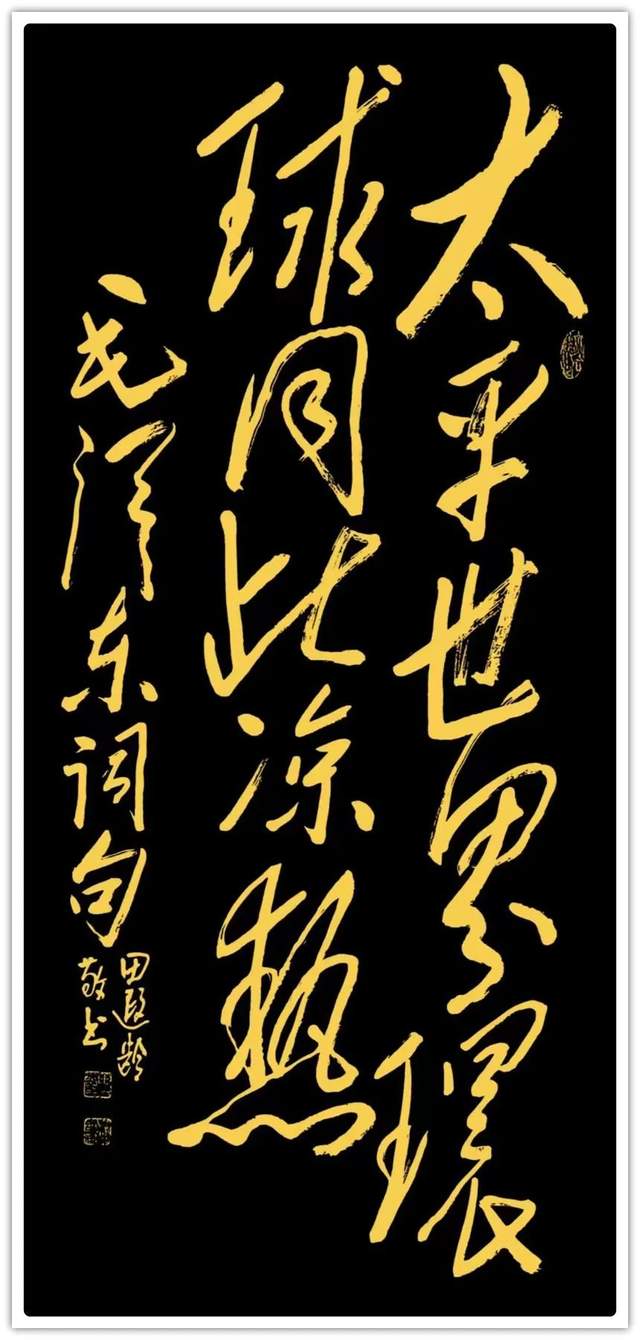 太平世界環
球同此凉熱
毛泽东词句
田遐龄
敬书